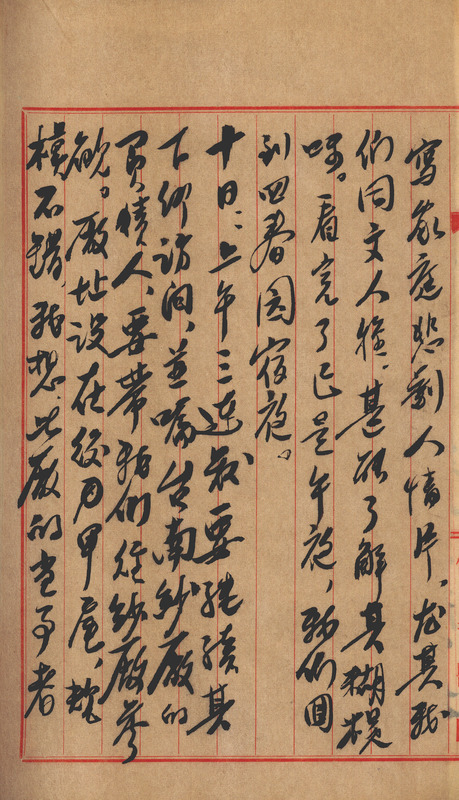 寫家庭悲劇人情片，尤其我
們同文人 甚能了解其
味。看完了已是午夜，我們回
到四春園宿夜。
十日：上午三連兄要繼續其
下鄉訪問，並囑台南紗廠的
負責人，要帶我們往紗廠參
觀。廠址設在 甲 ，規
模不錯，我想此廠的當事者